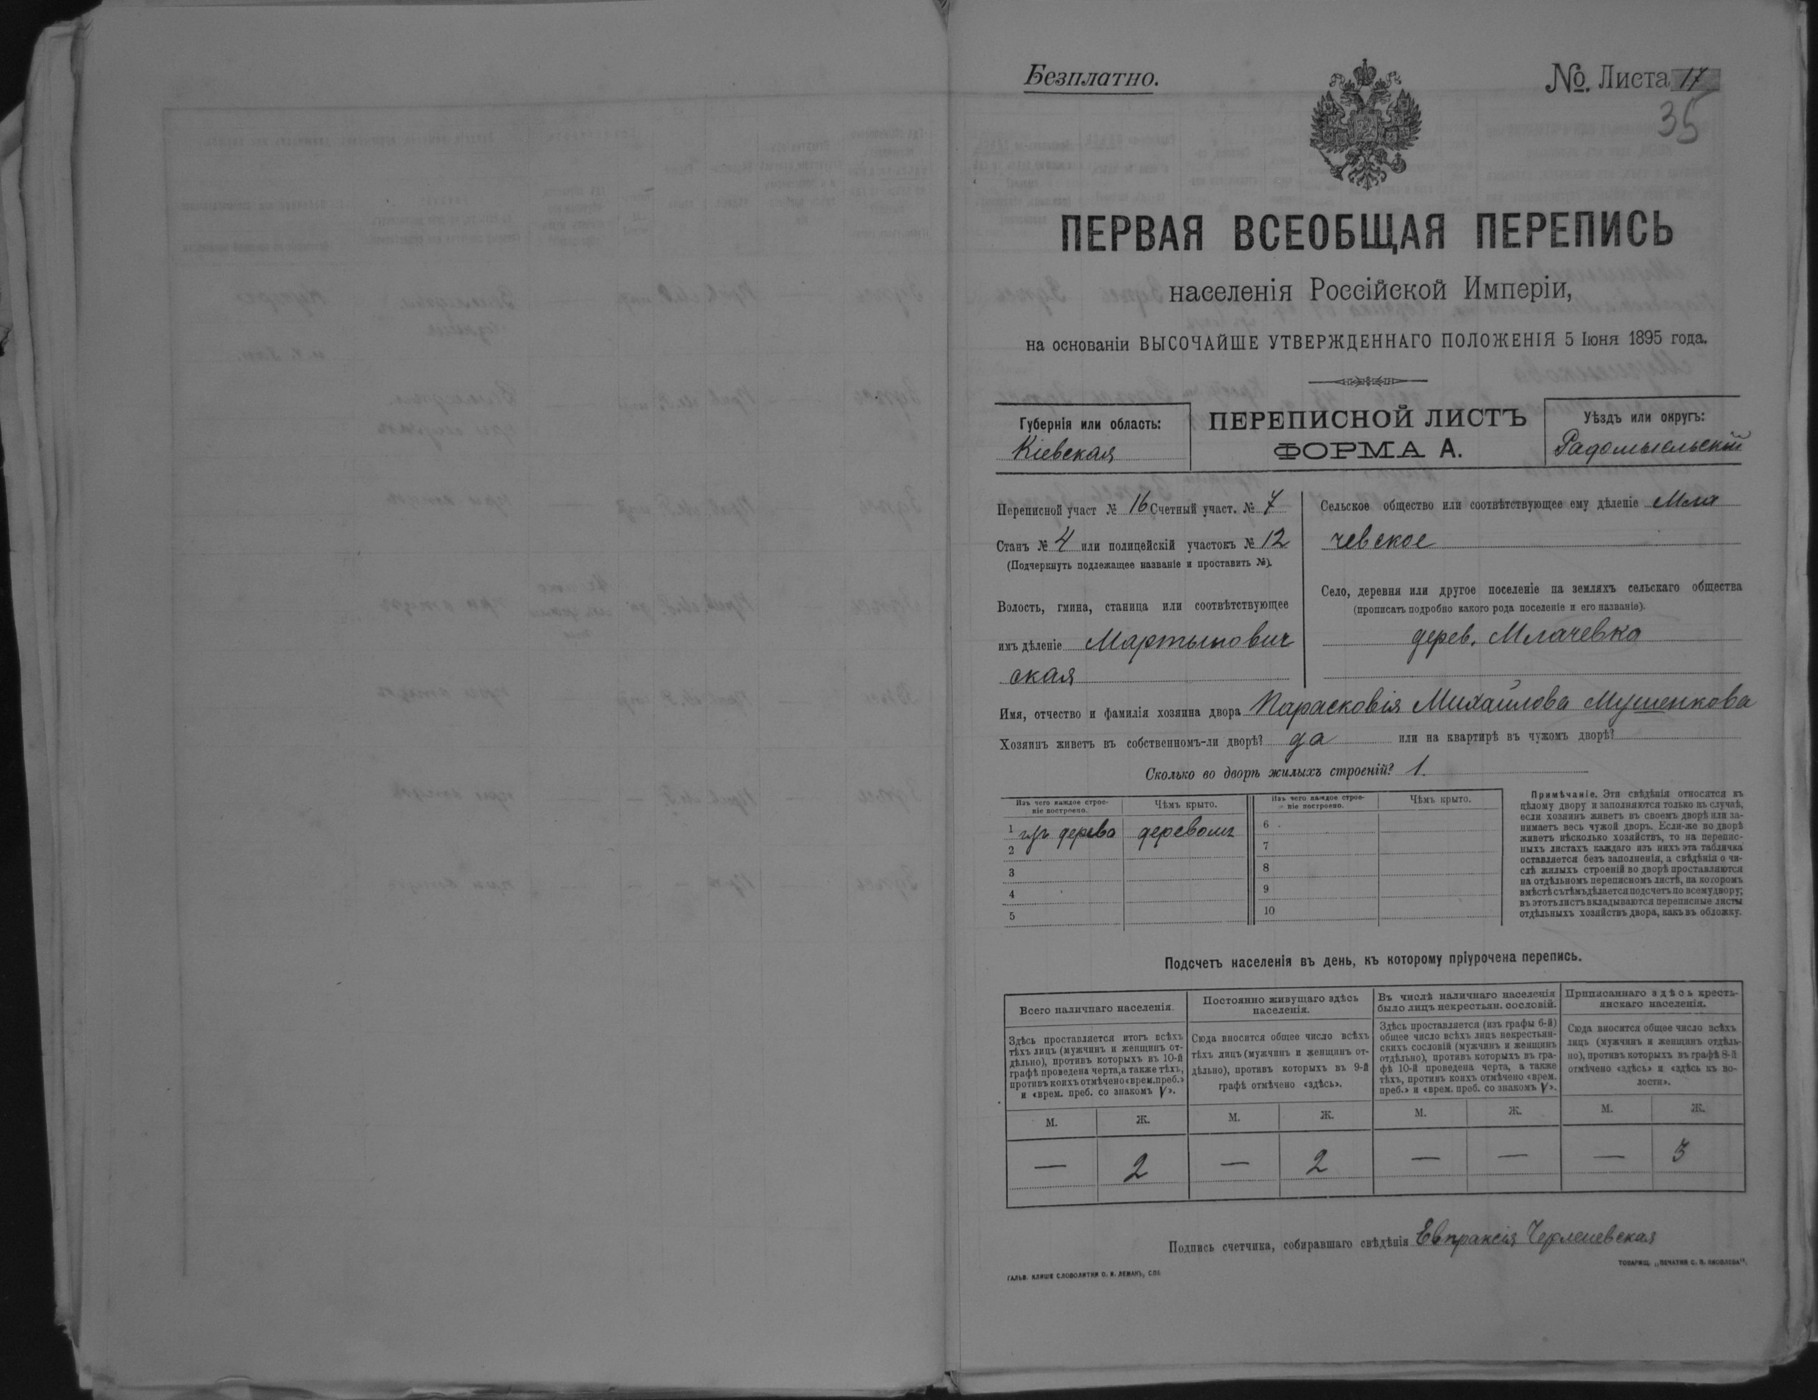 Безплатно.
№. Листа 17
35
ПЕРВАЯ ВСЕОБЩАЯ ПЕРЕПИСЬ
населенія Россійской Имперіи,
на основаніи ВЫСОЧАЙШЕ УТВЕРЖДЕННАГО ПОЛОЖЕНІЯ 5 Іюня 1895 года.
Губернія или область:
Кіевская
ПЕРЕПИСНОЙ ЛИСТЪ
ФОРМА А.
Уѣздъ или округъ:
Радомысльскій
Переписной участ № 16 Счетный участ. № 7
Станъ № 4 или полицейскій участокъ № 12
(Подчеркнуть подлежащее названіе и проставить №).
Волость, гмина, станица или соотвѣтствующее
имъ дѣленіе Мартынович
ская
Сельское общество или соотвѣтствующее ему дѣленіе Мла
чевское
Село, деревня или другое поселеніе на земляхъ сельскаго общества
(прописать подробно какого рода поселеніе и его названіе).
дерев. Млачевка
Имя, отчество и фамилія хозяина двора Парасковія Михайлова Мушенкова
Хозяинъ живетъ въ собственномъ-ли дворѣ? да или на квартирѣ въ чужомъ дворѣ?
Сколько во дворѣ жилыхъ строеній? 1.
Изъ чего каждое строе-
ніе построено.
Чѣмъ крыто.
Изъ чего каждое строе-
ніе построено.
Чѣмъ крыто.
1 изъ дерева деревомъ
2
3
4
5
6
7
8
9
10
Примѣчаніе. Эти свѣдѣнія относятся къ
цѣлому двору и заполняются только въ случаѣ,
если хозяинъ живетъ въ своемъ дворѣ или за-
нимаетъ весь чужой дворъ. Если-же во дворѣ
живетъ нѣсколько хозяйствъ, то на перепис-
ныхъ листахъ каждаго изъ нихъ эта табличка
оставляется безъ заполненія, а свѣдѣнія о чи-
слѣ жилыхъ строеній во дворѣ проставляются
на отдѣльномъ переписномъ листѣ, на которомъ
вмѣстѣ съ тѣмъ дѣлается подсчетъ по всему двору;
въ этотъ листъ вкладываются переписные листы
отдѣльныхъ хозяйствъ двора, какъ въ обложку.
Подсчетъ населенія въ день, къ которому пріурочена перепись.
Всего наличнаго населенія.
Здѣсь проставляется итогъ всѣхъ
тѣхъ лицъ (мужчинъ и женщинъ от-
дѣльно), противъ которыхъ въ 10-й
графѣ проведена черта, а также тѣхъ,
противъ коихъ отмѣчено «врем. преб.»
и «врем. преб. со знакомъ V».
Постоянно живущаго здѣсь
населенія.
Сюда вносится общее число всѣхъ
тѣхъ лицъ (мужчинъ и женщинъ от-
дѣльно), противъ которыхъ въ 9-й
графѣ отмѣчено «здѣсь».
Въ числѣ наличнаго населенія
было лицъ некрестьян. сословій.
Здѣсь проставляется (изъ графы 6-й)
общее число всѣхъ лицъ некрестьян-
скихъ сословій (мужчинъ и женщинъ
отдѣльно), противъ которыхъ въ гра-
фѣ 10-й проведена черта, а также
тѣхъ, противъ коихъ отмѣчено «врем.
преб.» и «врем. преб. со знакомъ V».
Приписаннаго здѣсь кресть-
янскаго населенія.
Сюда вносится общее число всѣхъ
лицъ (мужчинъ и женщинъ отдѣль-
но), противъ которыхъ въ графѣ 8-й
отмѣчено «здѣсь» и «здѣсь въ во-
лости».
М. Ж. М. Ж. М. Ж. М. Ж.
— 2 — 2 — — — 3
Подпись счетчика, собиравшаго свѣдѣнія Евпраксія